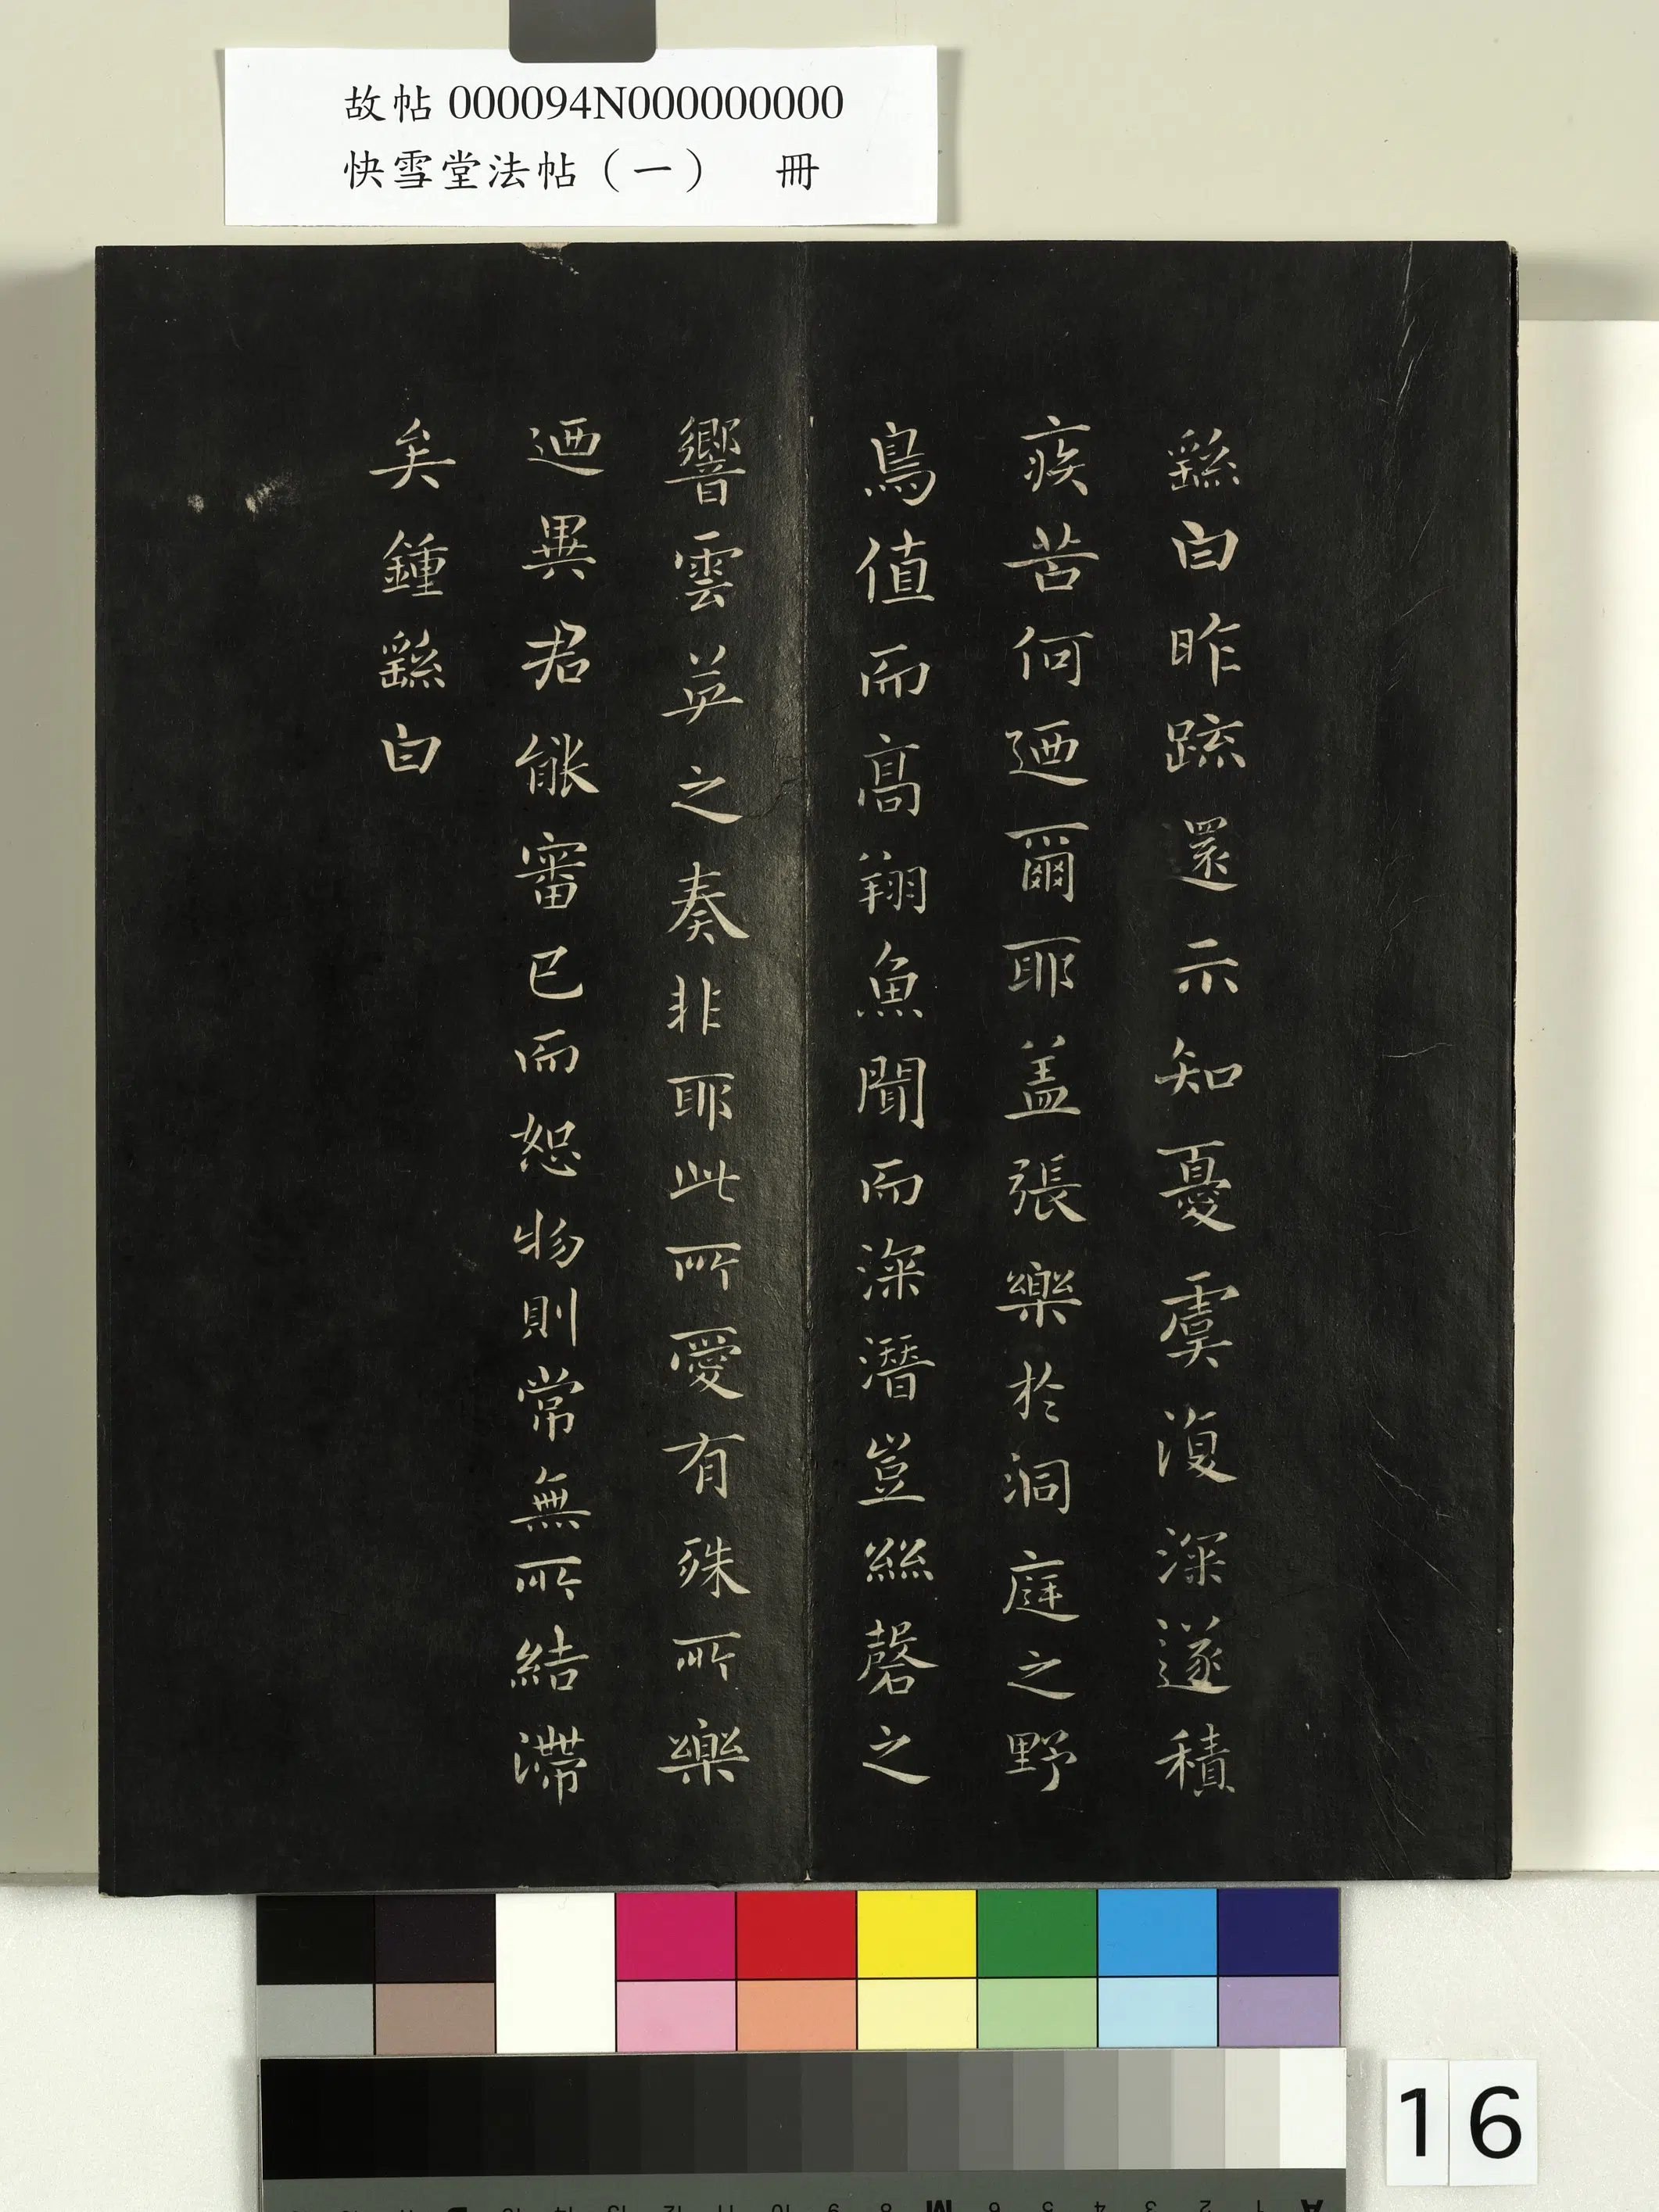 故帖000094N000000000
快雪堂法帖（一）　冊
繇白昨疏還示知憂虞復深遂積
疾苦何迺爾耶蓋張樂於洞庭之野
鳥值而高翔魚聞而深潛豈絲磬之
響雲英之奏非耶此所愛有殊所樂
迺異君能審己而恕物則常無所結滯
矣鍾繇白
16